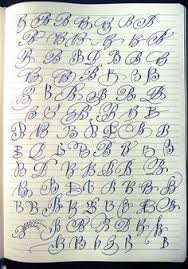 B B B B B B B
B B B B B B
B B B B B B B
B B B B B B B
B B B B B B B
B B B B B B B
B B B B B B B B
B B B B B B B
B B B B B B B B
B B B B B B B B
B B B B B B
B B b B B B